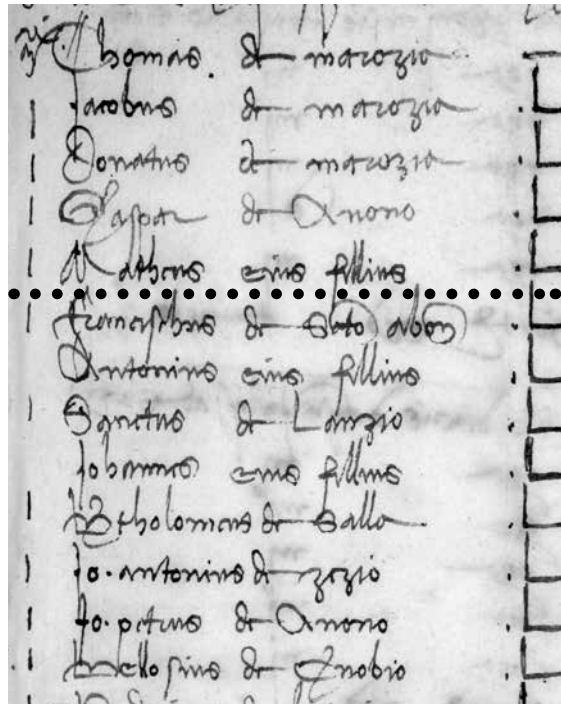 Thomas de marozio
Jacobus de marozia
Donatus de marozia
Gaspar de Anono
Matheus eius fillius
Francischus de Sco abon
Antonius eius fillius
Sanctus de Lanzio
Johannes eius fillius
Btholomeus de Salla
Jo. antonius de zezio
Jo. petrus de Anono
de Znobio